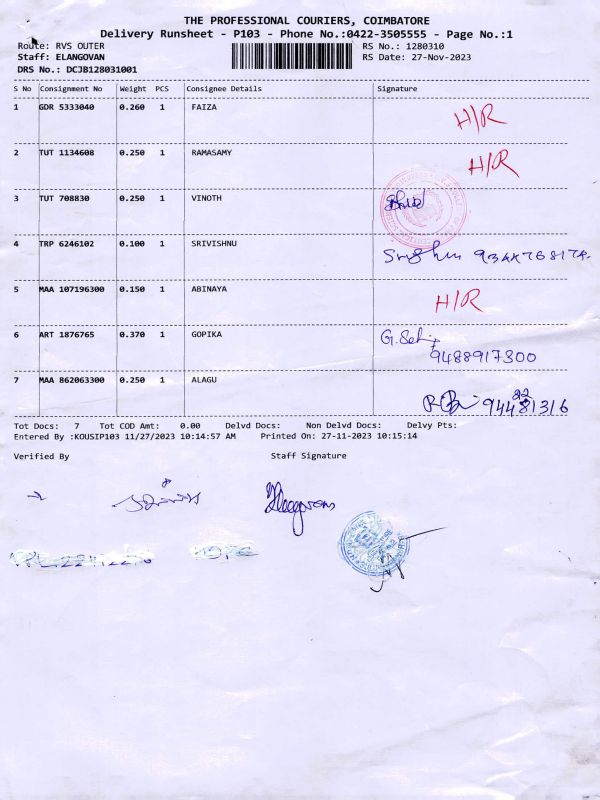 THE PROFESSIONAL COURIERS, COIMBATORE
Delivery Runsheet - P103 - Phone No.:0422-3505555 - Page No.:1
Route: RVS OUTER RS No.: 1280310
Staff: ELANGOVAN RS Date: 27-Nov-2023
DRS No.: DCJB128031001
S No Consignment No Weight PCS Consignee Details Signature
1 GDR 5333040 0.260 1 FAIZA H/R
2 TUT 1134608 0.250 1 RAMASAMY H/R
3 TUT 708830 0.250 1 VINOTH
4 TRP 6246102 0.100 1 SRIVISHNU
5 MAA 107196300 0.150 1 ABINAYA H/R
6 ART 1876765 0.370 1 GOPIKA
9488917300
7 MAA 862063300 0.250 1 ALAGU
Tot Docs: 7 Tot COD Amt: 0.00 Delvd Docs: Non Delvd Docs: Delvy Pts:
Entered By :KOUSIP103 11/27/2023 10:14:57 AM Printed On: 27-11-2023 10:15:14
Verified By Staff Signature